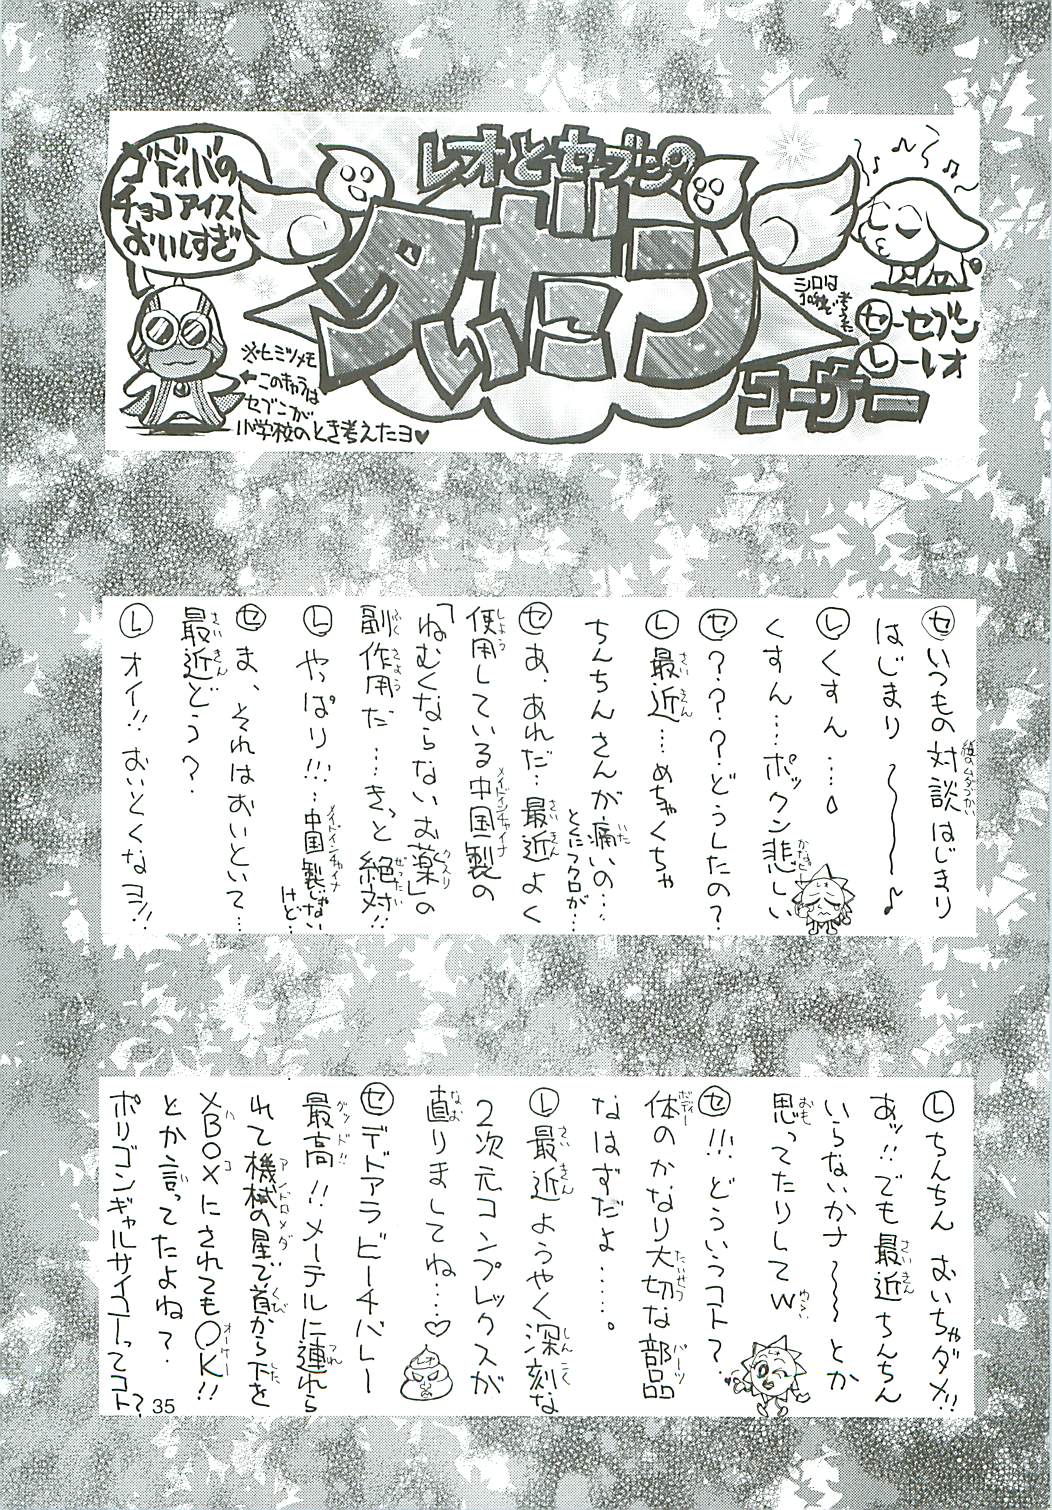 レオとセブンの
対だ二
コーナー
ゴディバの
チョコアイス
おいしすぎ
※ヒミツメモ
←このキャラは
セブンが
小学校のとき考えたヨ♥
シロは
考えた
セーセブン
レーレオ
セ いつもの対談はじまり
はじまり〜〜〜♪
レ くすん…。
くすん…ポックン悲しい
セ ？？？どうしたの？
レ 最近…めちゃくちゃ
ちんちんさんが痛いの…。
とくにフクロが…
セ あ、あれだ…最近よく
使用している中国製の
「ねむくならないお薬」の
副作用だ…きっと絶対!!
レ やっぱり!!!…中国製じゃない
けど…
セ ま、それはおいといて…
最近どう？
レ オイ!!おいとくなヨ!!
レ ちんちん おいちゃダメ!!
あッ!!でも最近ちんちん
いらないかナ〜〜とか
思ってたりしてw
セ !!!どういうコト？
体のかなり大切な部品
なはずだよ……。
レ 最近ようやく深刻な
2次元コンプレックスが
直りましてね…♡
レオ
セ デドアラビーチバレー
最高!!メーテルに連れら
れて機械の星で首から下を
XBOXにされてもOK!!
とか言ってたよね？
ポリゴンギャルサイコーってコト？
35